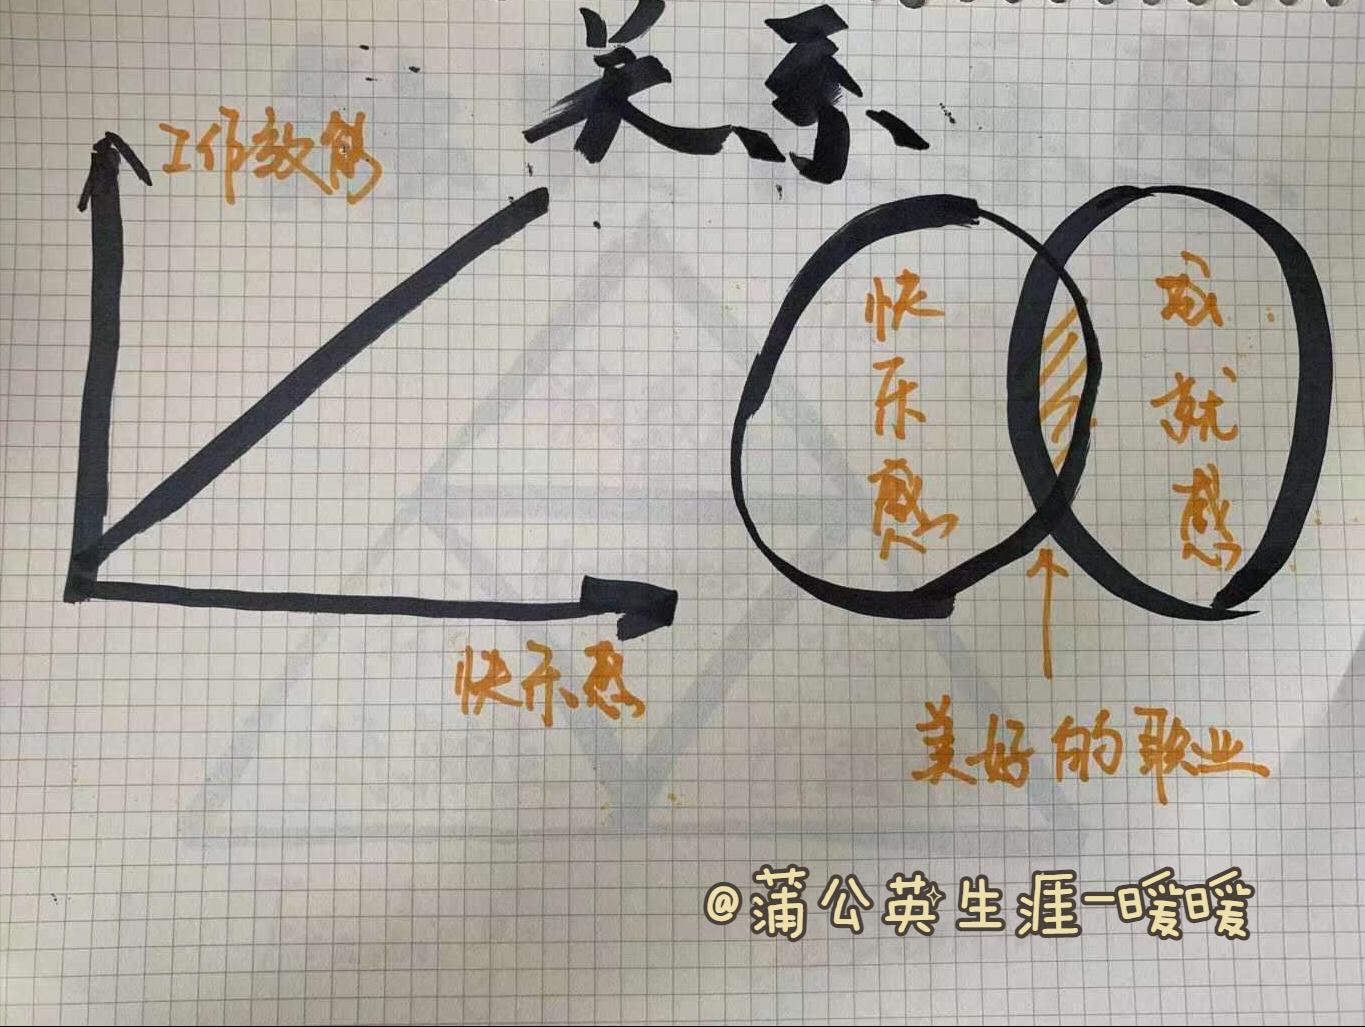 关系
工作效能
快乐感
快乐感
成就感
美好的职业
@蒲公英生涯-暖暖